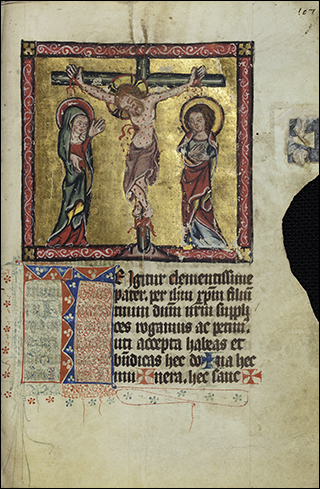 TE Igitur clementissime
pater. per ihm xpm filiu
tuum dnm nrm suppli
ces rogamus ac petim
uti accepta habeas et
bndicas hec do✠na hec
mu✠nera. hec sanc✠